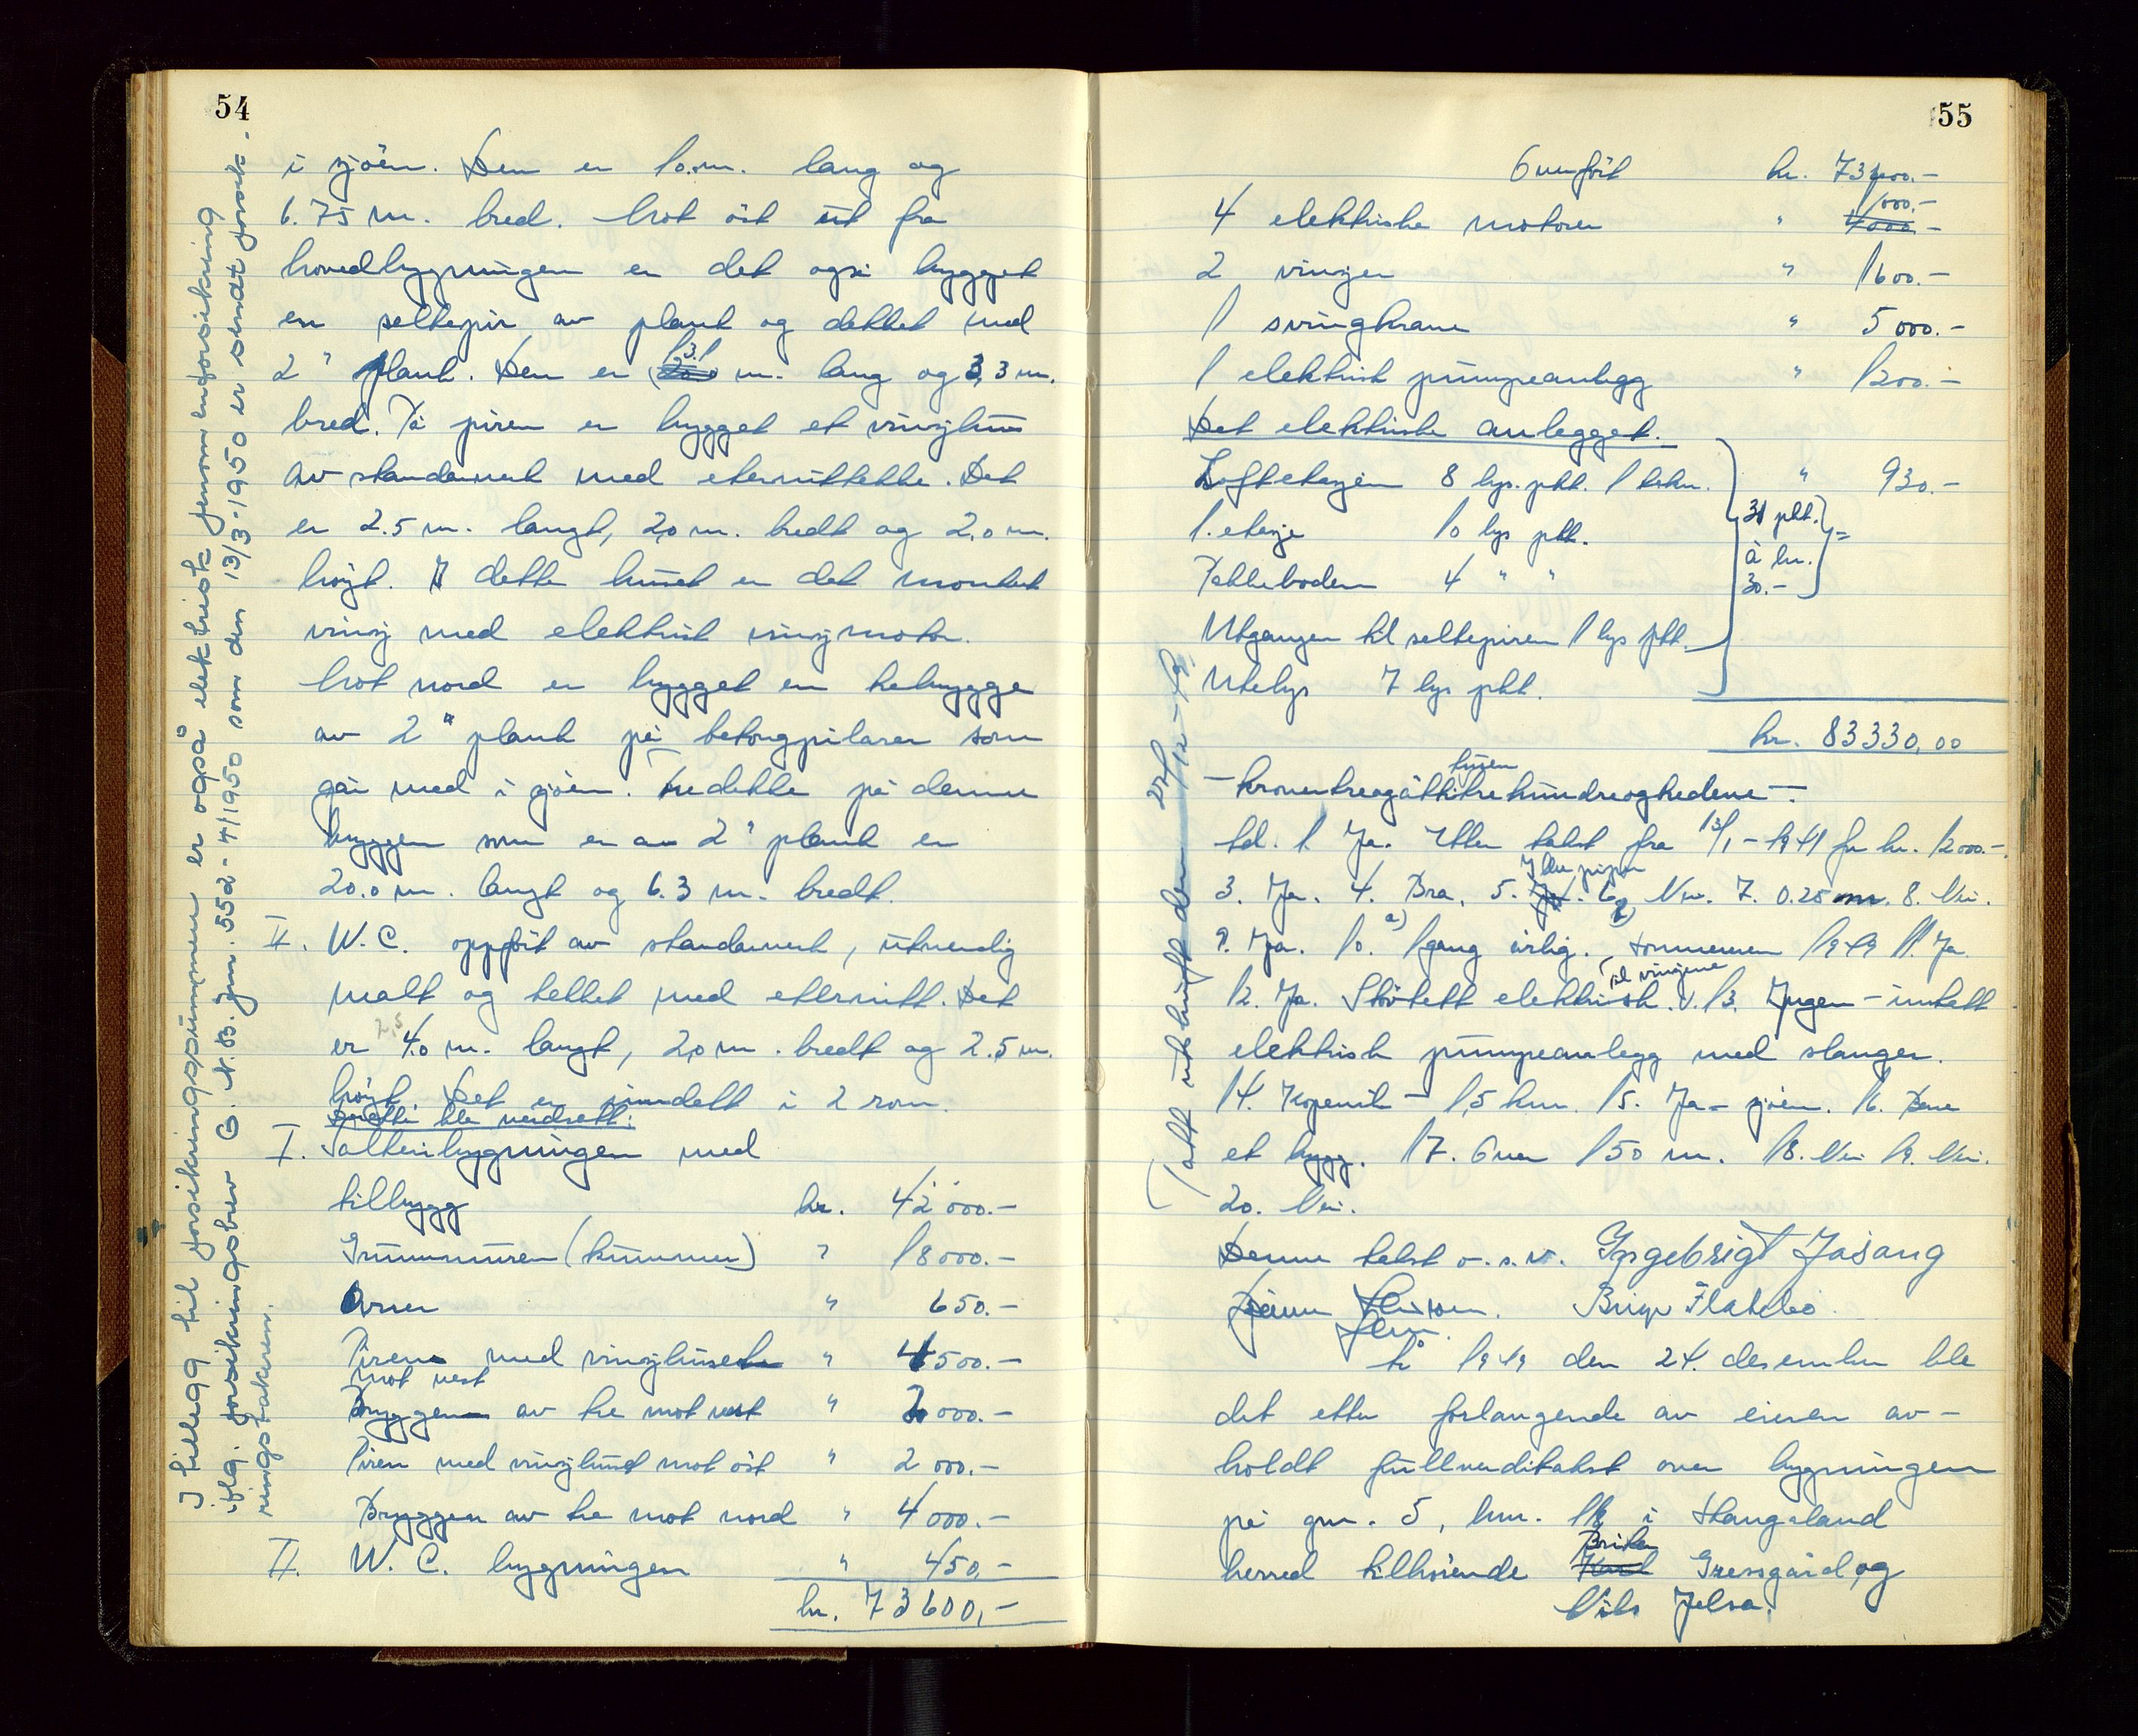 54
i sjöen. Den er 10.m. lang og
6.75 m. bred. Mot öst ut fra
hovedbygningen er det også bygget
en saltepir av plank og dekket med
2" plank. Den er 13.1 m. lang og 3,3 m.
bred. På piren er bygget et vinsjhus
av standerverk med eternittekke. Det
er 2.5 m. langt, 2,0 m. bredt og 2,0 m.
höyt. I dette huset er det montert
vinsj med elektrisk vinsjmotor.
Mot nord er bygget en trebrygge
av 2" plank på betongpilarer som
går med i sjöen. Tredekke på denne
bryggen som er av 2" plank er
20.0 m. langt og 6.3 m. bredt.
II. W.C. oppfört av standerverk, utvendig
malt og tekket med eternitt. Det
2,5
er 4.0 m. langt, 2,0 m. bredt og 2.5 m.
höyt. Det er inndelt i 2 rom.
ble verdsatt:
I. Salteribygningen med
tilbygg kr. 42 000.-
Grunnmuren (kummer) " 18 000.-
Ovner " 650.-
Piren med vinsjhuset " 4500.-
mot vest
Bryggen av tre mot vest " 2 000.-
Piren med vinsjhuset mot öst " 2 000.-
Bryggen av tre mot nord " 4 000.-
II. W. C. bygningen " 450,-
kr. 73 600,-
I tillegg til forsikringssummen er også elektrisk fenomenforsikring
iflg. forsikringsbrev G. N.B. Jnr. 552 - 4/1950 som den 13/3-1950 er sendt forsik-
ringstakeren.
55
Overfört kr. 73 600.-
1000.-
4 elektriske motorer " 4000.-
2 vinsjer " 1600.-
1 svingkrane " 5 000.-
1 elektrisk pumpeanlegg " 1200.-
Det elektriske anlegget.
Loftetasjen 8 lys. pkt. 1 " 930.-
1. etasje 10 lys pkt. 31 pkt. =
Pakkboden 4 " " à kr. 30.-
Utgangen til saltepiren 1 lys pkt.
Utelys 7 lys pkt.
kr. 83330,00
tusen
- Kronertreogåttitrehundreogtredve -.
td. 1. Ja. Etter takst fra 13/1 - 1941 for kr. 12000.-.
3. Ja. 4. Bra. 5. 6. Nei. 7. 0.25 m. 8. Nei.
9. Ja. 10. a) 1 gang årlig. b) Sommeren 1949 11. Ja
til vinsjene
12. Ja. Stöpett elektrisk. v. 13. Ingen - untatt
elektrisk pumpeanlegg med slanger.
14. Kopervik - 1,5 km. 15. Ja - sjöen. 16. Bare
et bygg. 17. Over 150 m. 18. Nei 19. Nei.
20. Nei.
Denne takst o.s.v. Ingebrigt Jasang
Birger Flatebö
År 1949 den 24. desember ble
det etter forlangende av eieren av-
holdt fullverditakst over bygningen
på gnr. 5, bnr. 16 i Stangaland
herred tilhörende Gressgård og
Nils Jelsa.
Tatt utskrift den 27/12 - 49